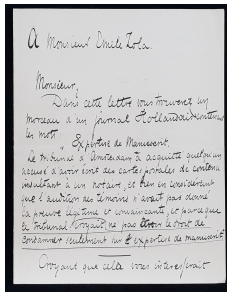 A Monsieur Emile Zola.
Monsieur,
Dans cette lettre vous trouverez un
morceau d'un journal Hollandais contenant
les mots
"Expertise de Manuscrit.
Le tribunal d'Amsterdam à acquitté quelqu'un
accusé d'avoir écrit des cartes postales de contenu
insultant à un notaire, et bien en considérant
que l'audition des témoins n'avait pas donné
la preuve légitime et convaincante, et parceque
le tribunal croyait ne pas avoir le droit de
condamner seulement sur l'expertise de manuscrit.
Croyant que cela vous intéresserait